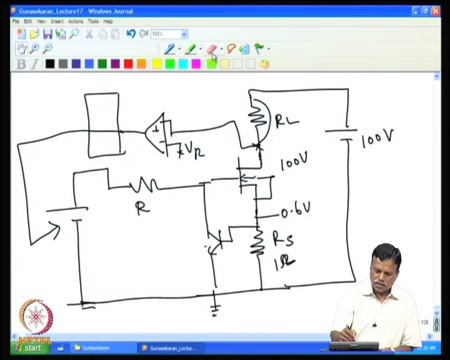 Gunasekaran_Lecture17 - Windows Journal
File Edit View Insert Actions Tools Help
100%
B I
RL
VR
100V
100V
0.6V
R
RS
1Ω
NPTEL
start
Gunasekaran
Gunasekaran_Lectur...